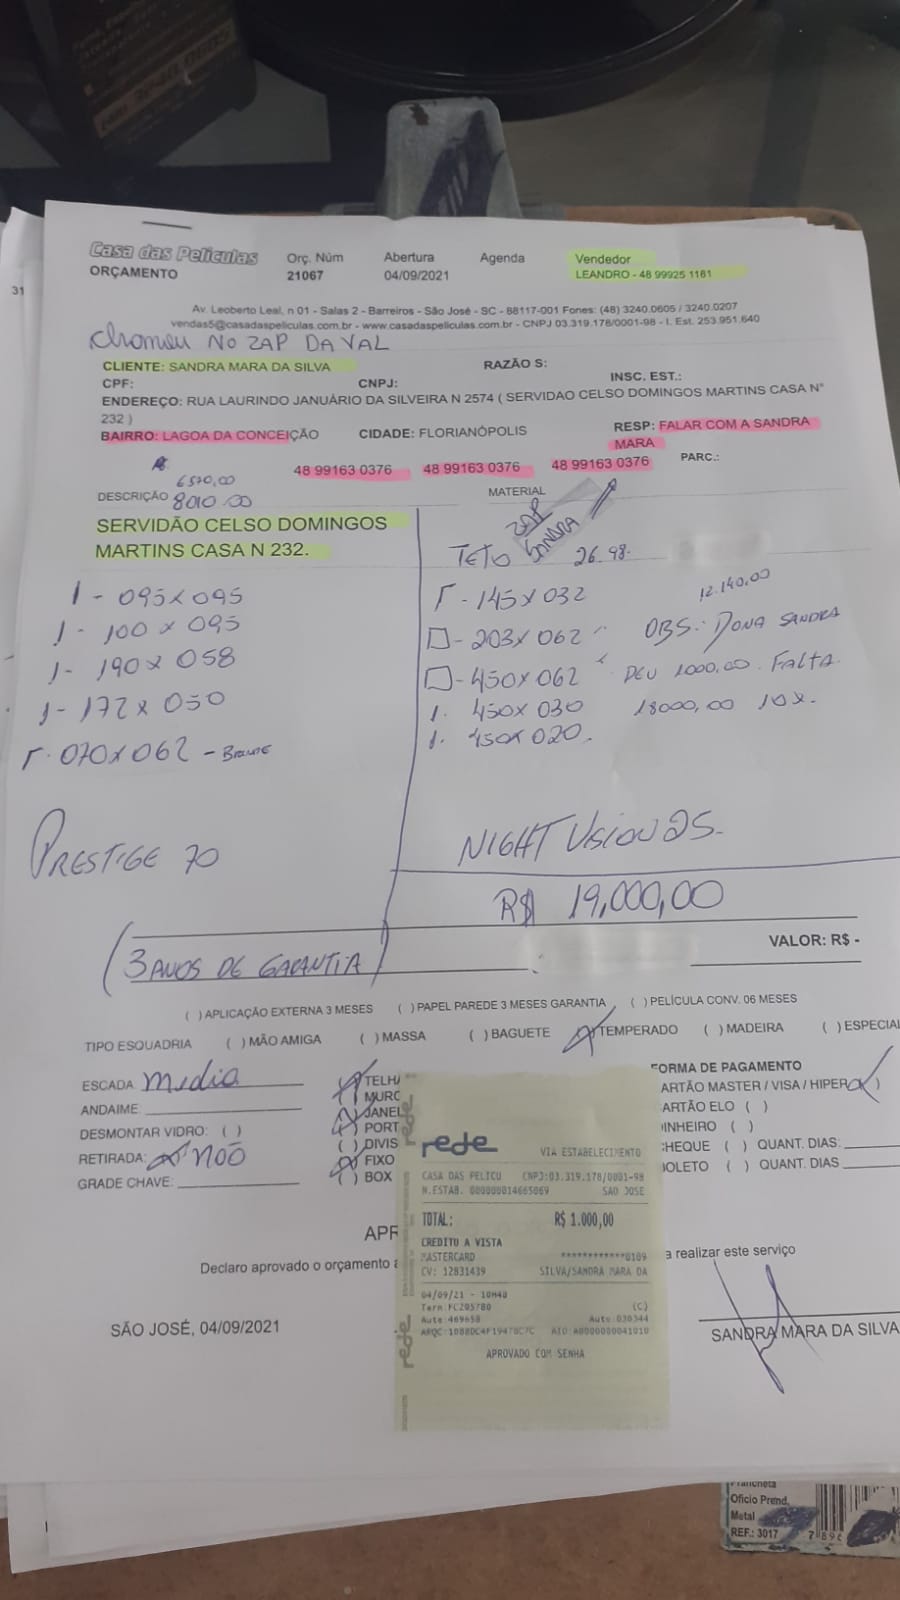 31
Casa das Películas
Orç. Núm Abertura Agenda Vendedor
ORÇAMENTO 21067 04/09/2021 LEANDRO - 48 99925 1161
Av. Leoberto Leal, n 01 - Salas 2 - Barreiros - São José - SC - 88117-001 Fones: (48) 3240.0605 / 3240.0207
vendas5@casadaspeliculas.com.br - www.casadaspeliculas.com.br - CNPJ 03.319.178/0001-98 - I. Est. 253.951.640
chamou NO ZAP DA VAL
CLIENTE: SANDRA MARA DA SILVA RAZÃO S:
CPF: CNPJ: INSC. EST.:
ENDEREÇO: RUA LAURINDO JANUÁRIO DA SILVEIRA N 2574 ( SERVIDAO CELSO DOMINGOS MARTINS CASA N°
232 )
BAIRRO: LAGOA DA CONCEIÇÃO CIDADE: FLORIANÓPOLIS RESP: FALAR COM A SANDRA
MARA
48 99163 0376 48 99163 0376 48 99163 0376 PARC.:
DESCRIÇÃO 8010.00 MATERIAL
SERVIDÃO CELSO DOMINGOS
MARTINS CASA N 232.
ZAP
SANDRA
TETO 26.98.
1 - 095 x 095
1 - 100 x 095
1 - 190 x 058
1 - 172 x 050
070 x 062 -
- 145 x 032 12.140,00
- 203 x 062 OBS: DONA SANDRA
- 450 x 062 DEU 1000,00. FALTA
1. 450 x 030 18000,00 10x.
1. 450 x 020.
PRESTIGE 70
NIGHT VISION 25.
R$ 19,000,00
VALOR: R$ -
(3 ANOS DE GARANTIA)
( ) APLICAÇÃO EXTERNA 3 MESES ( ) PAPEL PAREDE 3 MESES GARANTIA ( ) PELÍCULA CONV. 06 MESES
TIPO ESQUADRIA ( ) MÃO AMIGA ( ) MASSA ( ) BAGUETE (X) TEMPERADO ( ) MADEIRA ( ) ESPECIAL
ESCADA: media
ANDAIME:
DESMONTAR VIDRO: ( )
RETIRADA: NÃO
GRADE CHAVE:
TELHA
MURO
JANEL
PORT
( ) DIVIS
FIXO
( ) BOX
FORMA DE PAGAMENTO
ARTÃO MASTER / VISA / HIPER
ARTÃO ELO ( )
INHEIRO ( )
HEQUE ( ) QUANT. DIAS:
OLETO ( ) QUANT. DIAS
rede VIA ESTABELECIMENTO
CASA DAS PELICU CNPJ:03.319.178/0001-98
N.ESTAB. 000000014665069 SAO JOSE
TOTAL: R$ 1.000,00
CREDITO A VISTA
MASTERCARD ************0109
CV: 12831439 SILVA/SANDRA MARA DA
04/09/21 - 10H48
Term:FC205780 (C)
Aute:469658 Auto:030344
AID:A0000000041010
APROVADO COM SENHA
rede
rede
APR
Declaro aprovado o orçamento a
a realizar este serviço
SÃO JOSÉ, 04/09/2021
SANDRA MARA DA SILVA
Prancheta
Oficio Prend.
Metal
REF.: 3017